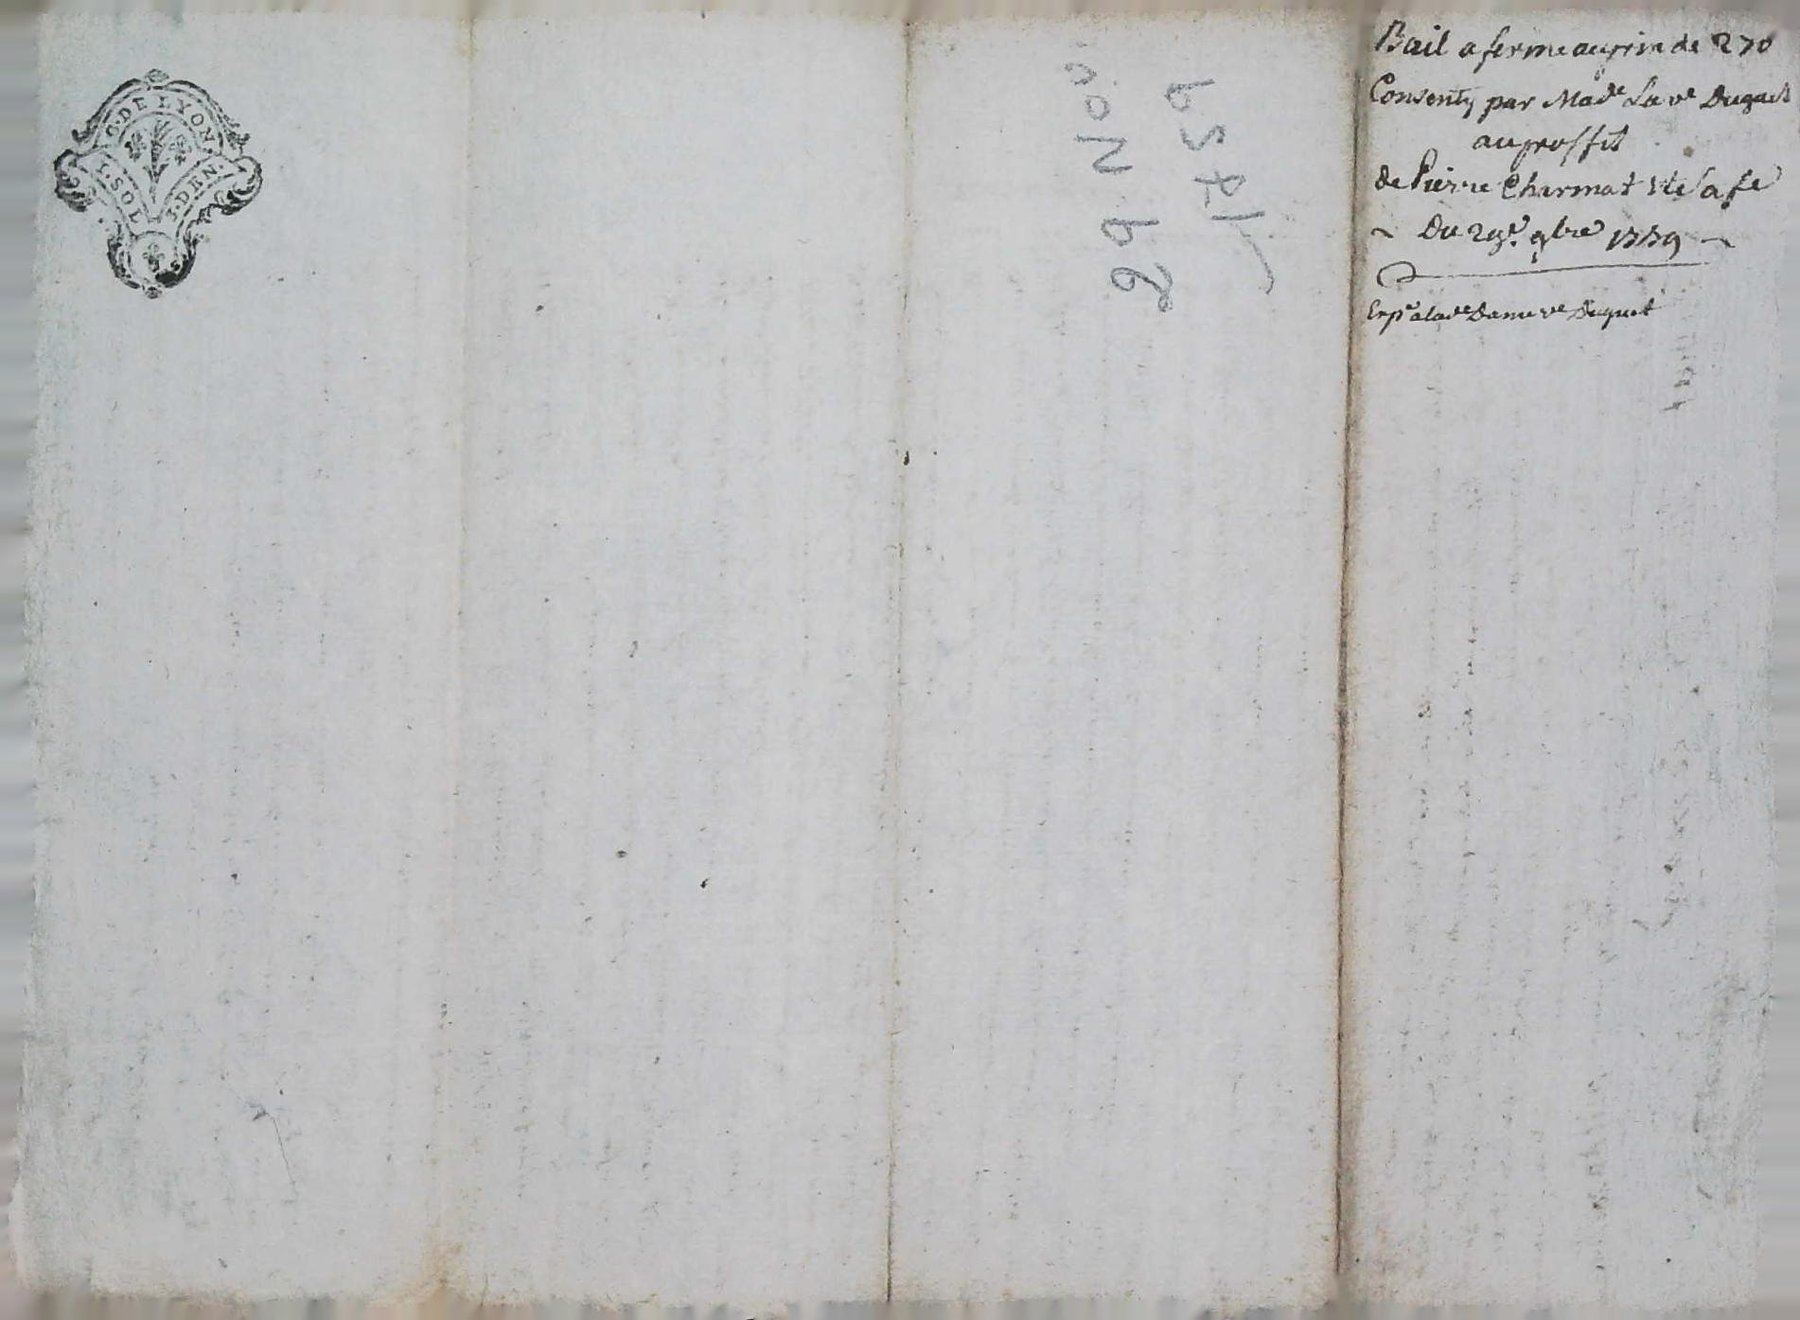 G. DE LYON
1. SOL 3. DEN.
29 Nov.
1759
Bail a ferme au prix de 270
Consenty par Made La ve Duguet
au proffit
de Pierre Charmat et sa fe
~ Du 29e. 9bre 1759 ~
Expn a lade Dame ve Duguet